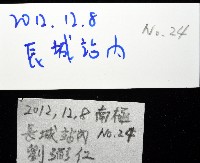 2012.12.8
長城站內
No.24
2012,12.8 南極
長城站內 No.24
劉弼仁